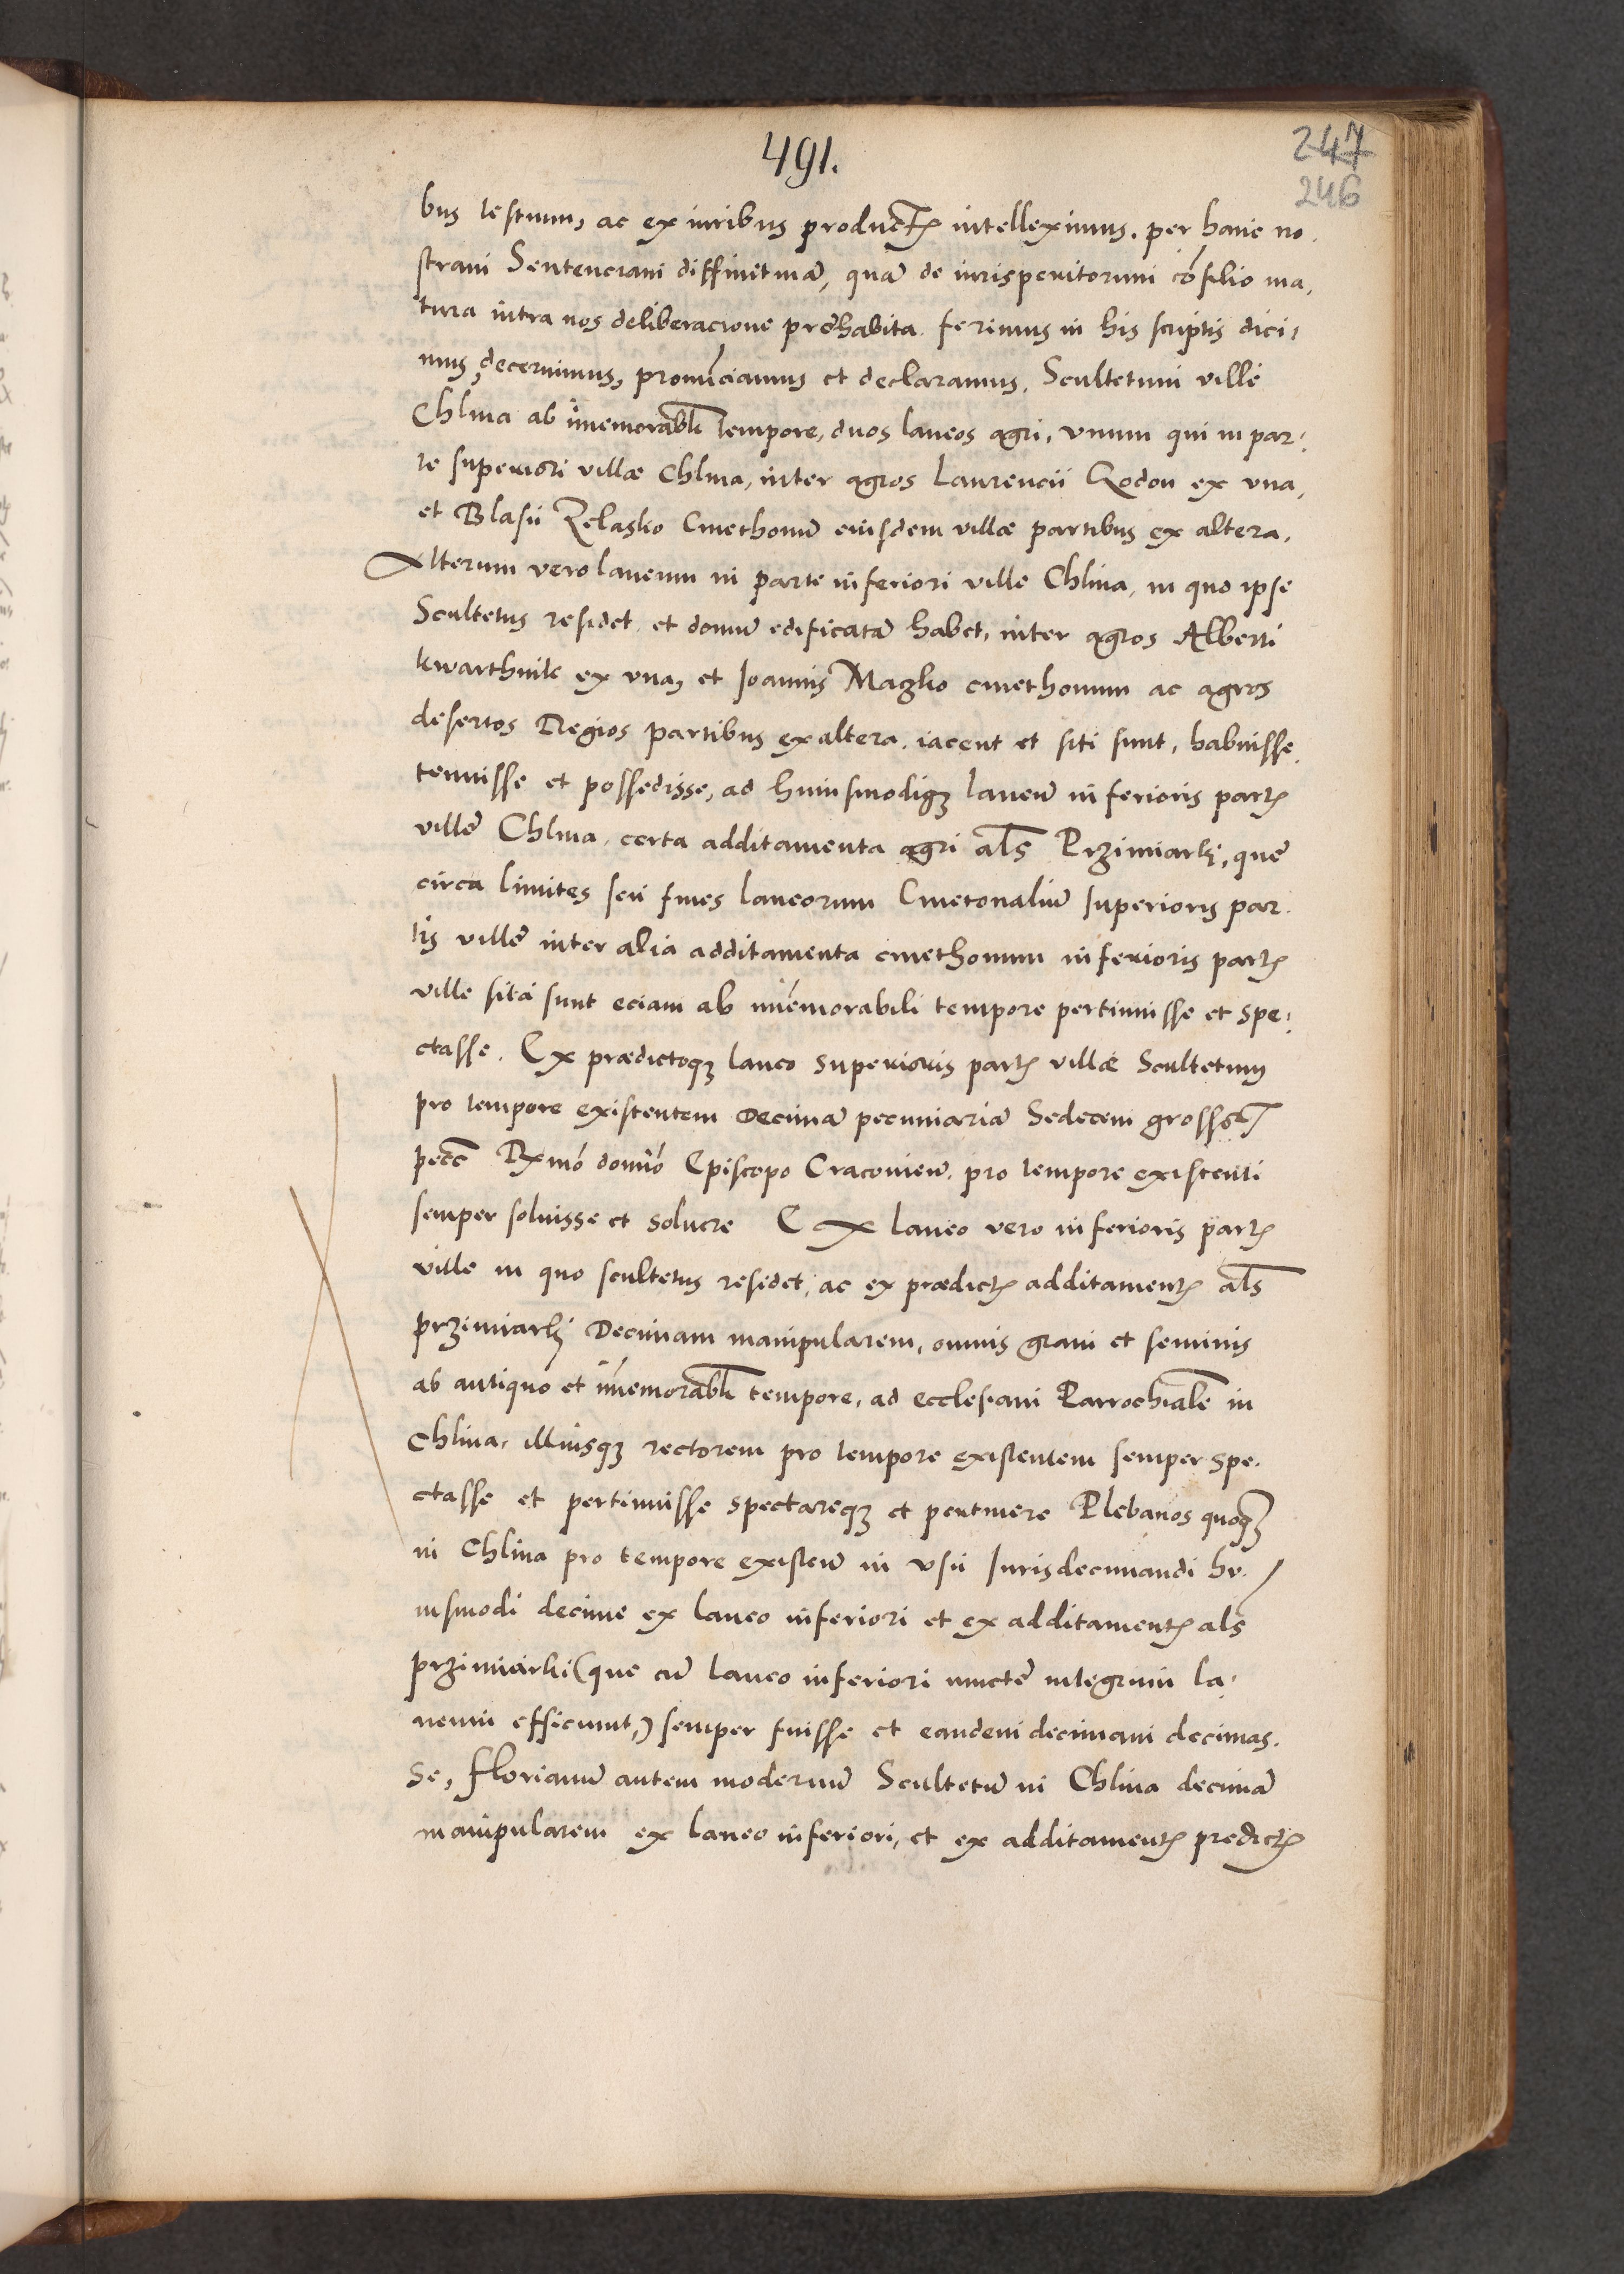 491.
247
246
bus testium, ac ex iuribus product intelleximus. per hanc no.
stram Sentenciam diffinitiuã, quã de iurisperitorum cõsilio ma,
tura intra nos deliberacione prehabita. ferimus in his scriptis dici,
mus, decernimus, pronũciamus et declaramus. Scultetum ville
Chlina ab imemorabli tempore, duos laneos agri, vnum qui in par,
te superiori villæ Chlina, inter agros Laurencii Rodon ex vna,
et Blasii Zelasko Cmethonũ eiusdem villæ partibus ex altera.
Alterum vero laneum in parte inferiori ville Chlina, in quo ipse
Scultetus residet et domũ edificatã habet, inter agros Alberti
kwarthnik ex vna, et Joannis Mazko cmethonum ac agros
desertos Regios partibus ex altera. iacent et siti sunt, habuisse,
tenuisse et possedisse, ad huiusmodiqz laneũ inferioris part
ville Chlina, certa additamenta agri als Przimiarki, que
circa limites seu fines laneorum Cmetonaliũ superioris par.
tis ville inter alia additamenta cmethonum inferioris part
ville sita sunt eciam ab imemorabili tempore pertinuisse et spe,
ctasse. Ex prædictoqz laneo superioris part villæ Scultetum
pro tempore existentem Decimã pecuniariã Sedecem gross
pecc Rxmo domio Episcopo Cracovien. pro tempore existenti
semper soluisse et soluere Ex laneo vero inferioris part
ville in quo scultetus residet, ac ex prædict additament als
przimiarki Decimam manipularem, omnis grani et seminis
ab antiquo et imemorabli tempore, ad ecclesiam Parrochialẽ in
Chlina, illiusqz rectorem pro tempore existentem semper spe.
ctasse et pertinuisse spectareqz et pertinere Plebanos quoqz
in Chlina pro tempore existen in vsu Jurisdecimandi hu.
iusmodi decime ex laneo inferiori et ex additament als
przimiarki (que cũ laneo inferiori iuncte integrum la,
neum efficiunt,) semper fuisse et eandem decimam decimas.
se, Florianũ autem modernũ Scultetũ in Chlina decimã
manipularem ex laneo inferiori, et ex additament predict